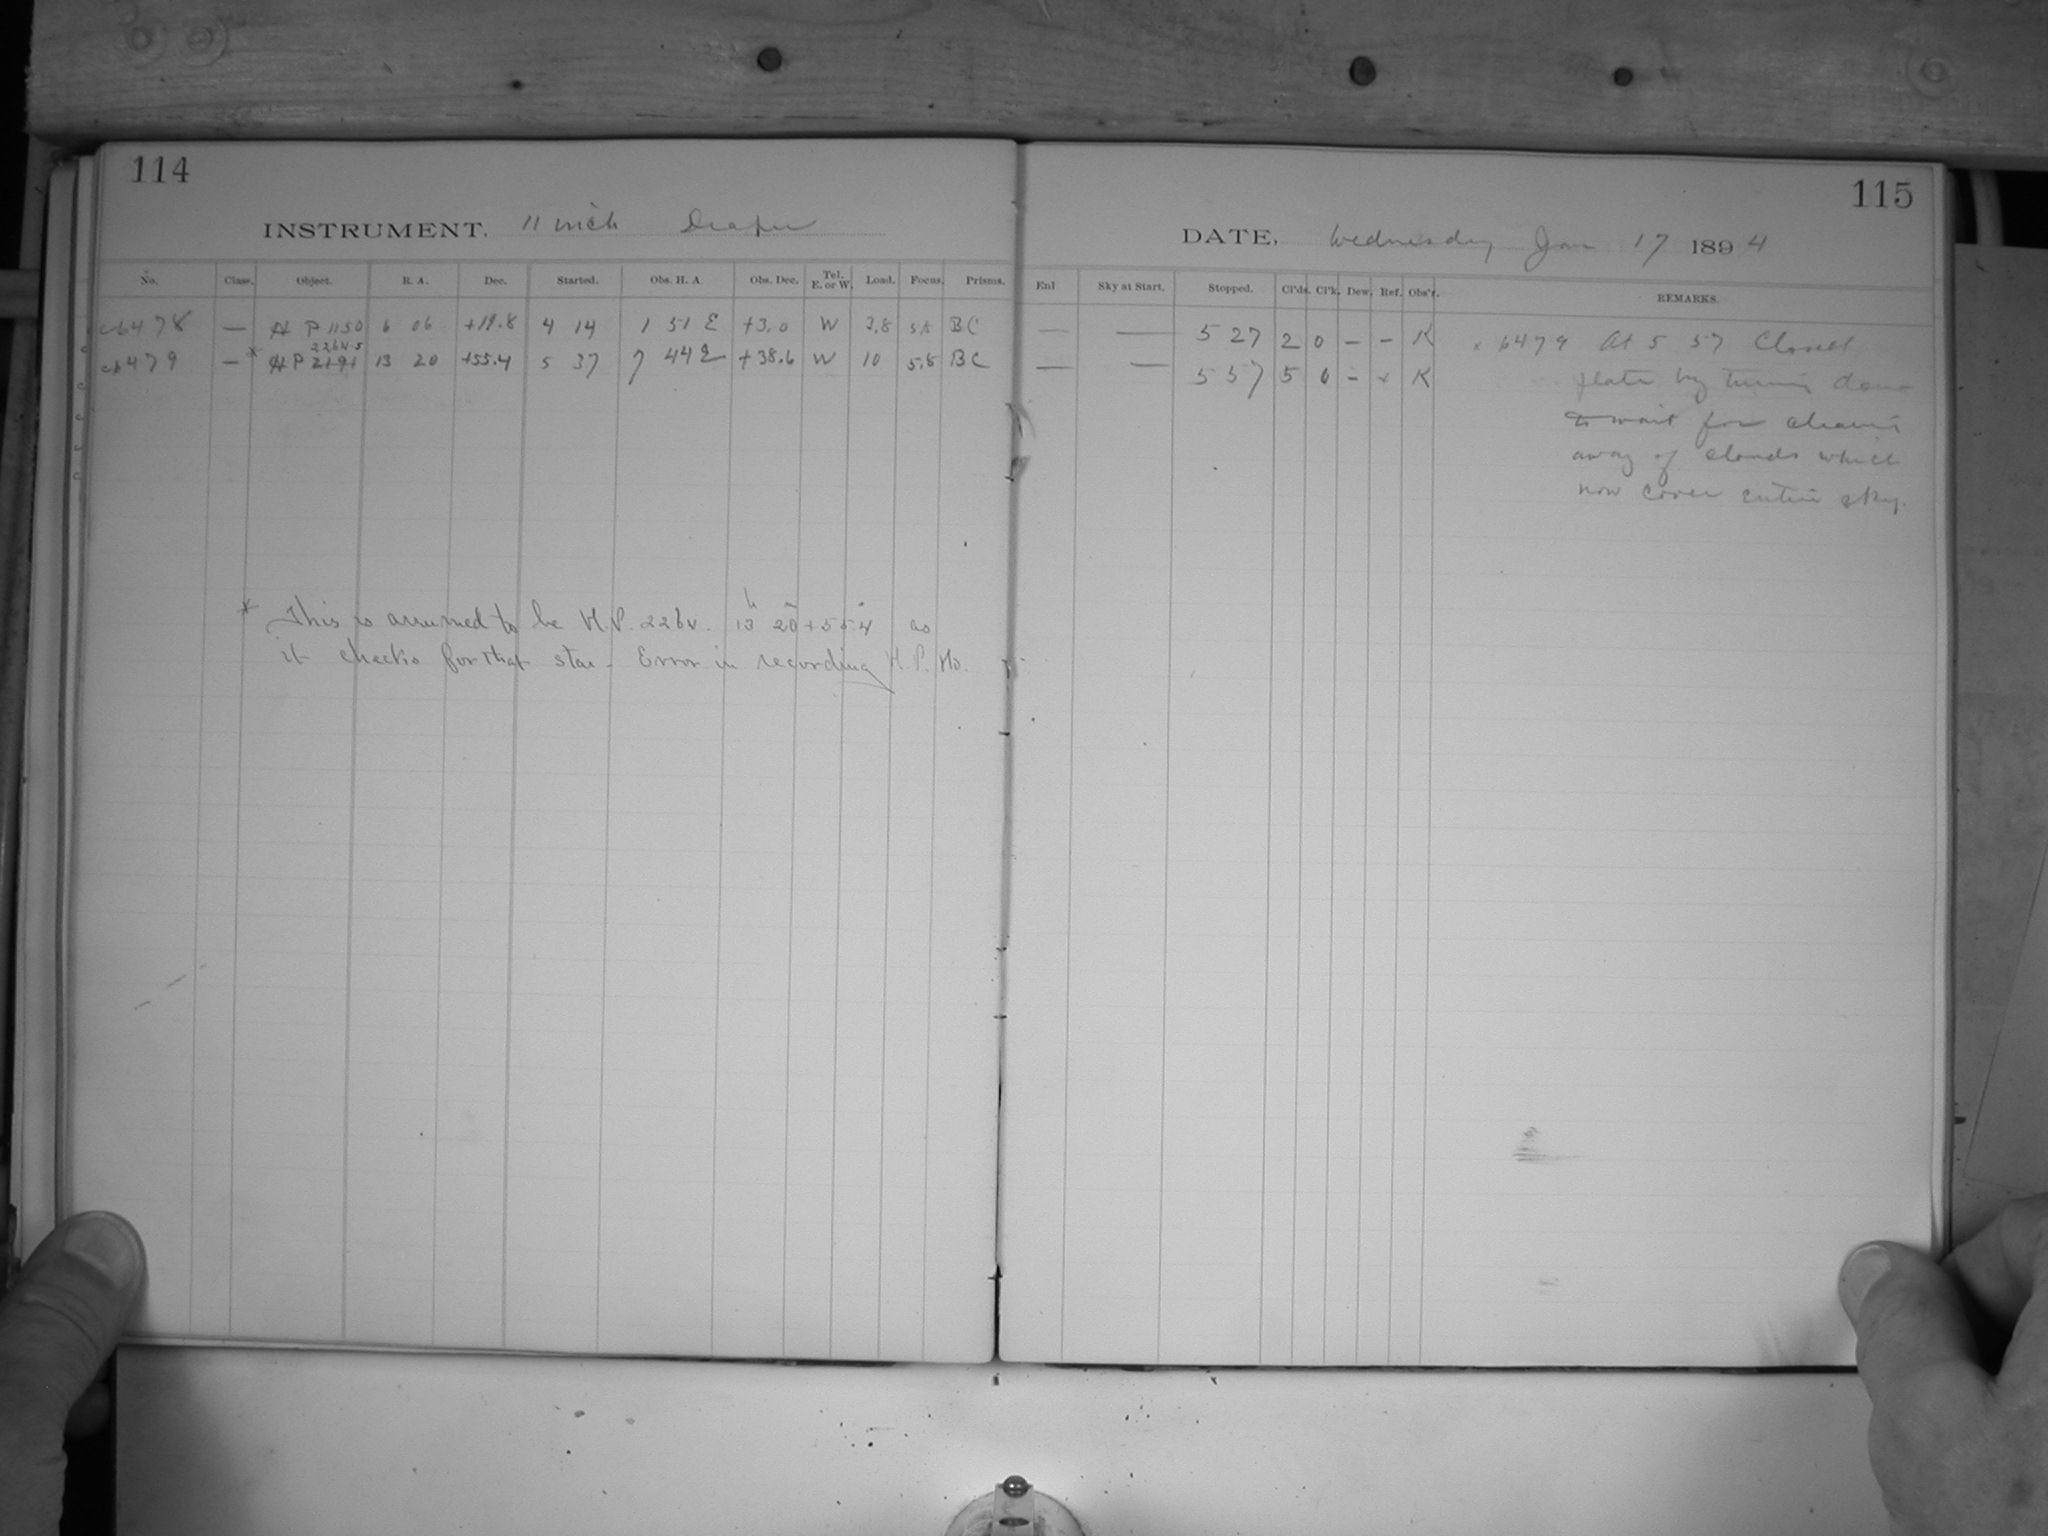 114
INSTRUMENT. 11 inch Draper
No. Class. Object. R. A. Dec. Started. Obs. H. A. Obs. Dec. Tel. E. or W. Load. Focus. Prisms.
6478 — H P 1150 6 06 +19.8 4 14 1 51 E +3.0 W 3.8 5.8 BC
6479 — * H P 2191 13 20 +55.4 5 37 7 44 E +38.6 W 10 5.8 BC
* This is assumed to be H.P. 13 h 20 m +55°.4 as
it checks for that star – Error in recording H.P. No.
115
DATE, Wednesday Jan 17 1894
Enl Sky at Start. Stopped. Cl'ds. Cl'k. Dew. Ref. Obs'r. REMARKS.
— — 5 27 2 0 – – K 6479 At 5 57 Closed
— — 5 57 5 0 – K plate by turning dome
to wait for clearing
away of clouds which
now cover entire sky.